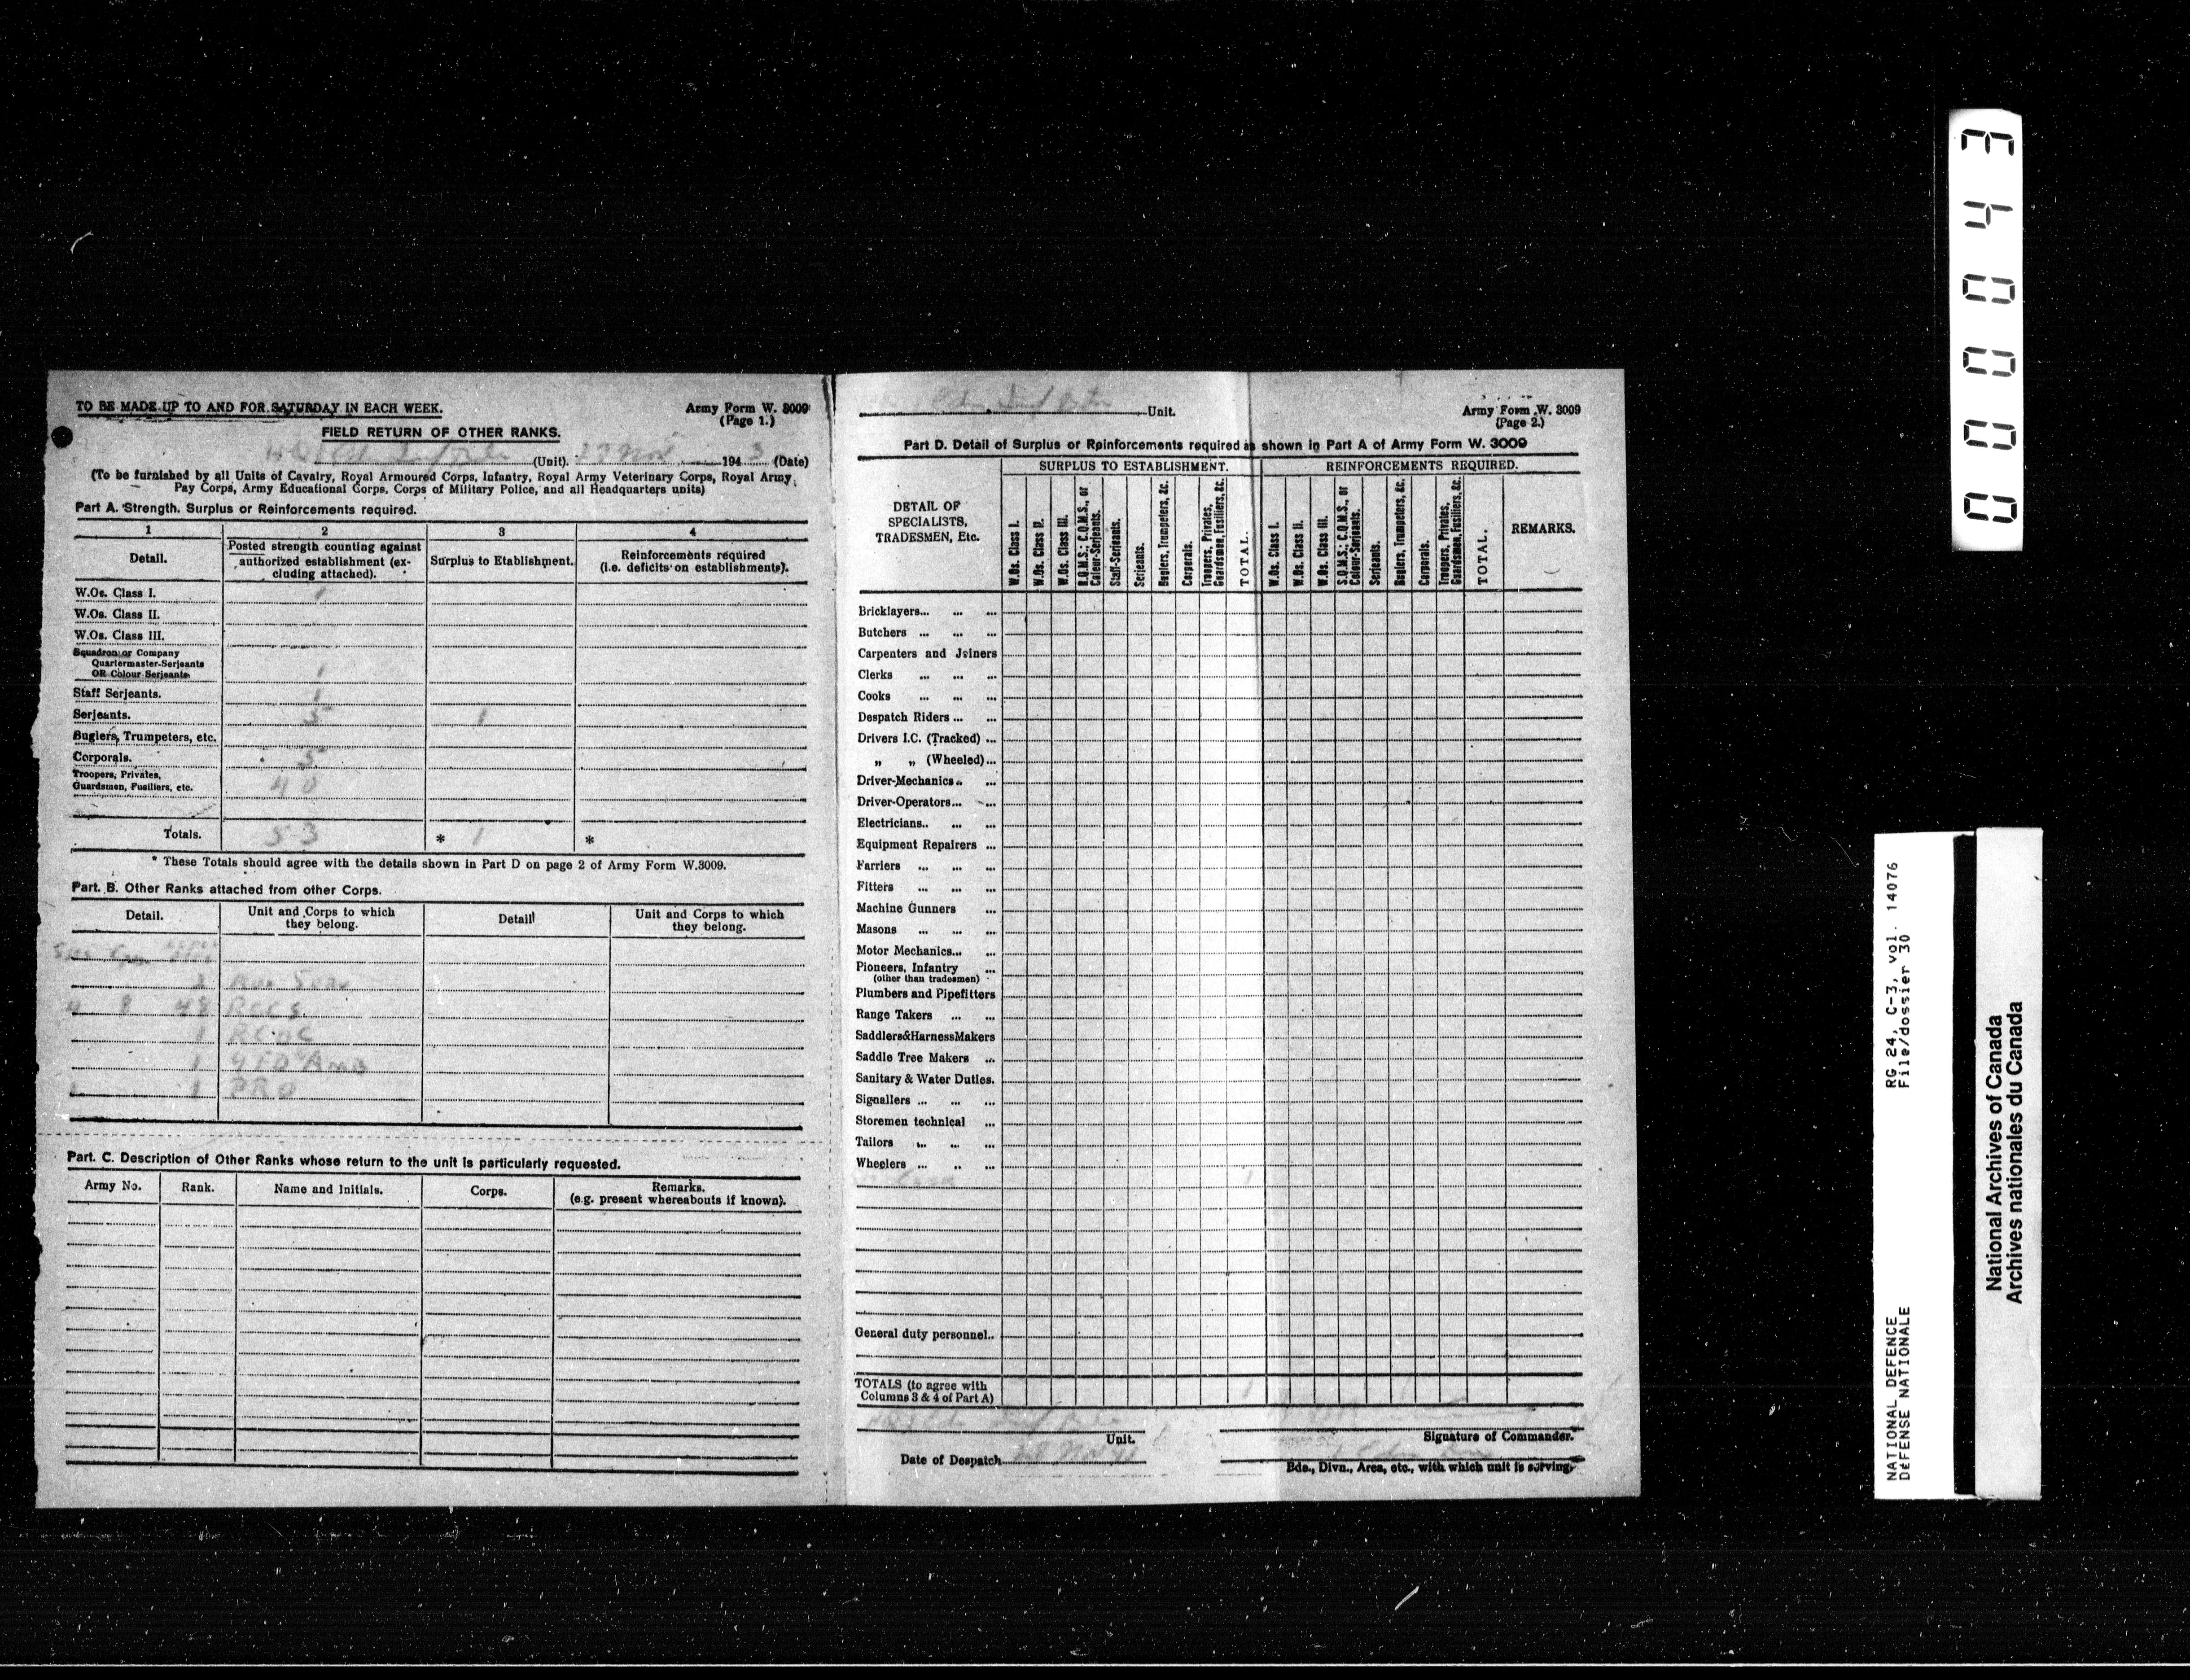 TO BE MADE UP TO AND FOR SATURDAY IN EACH WEEK.
Army Form W. 3009
(Page 1.)
FIELD RETURN OF OTHER RANKS.
(Unit). 27 Nov 1943 (Date)
(To be furnished by all Units of Cavalry, Royal Armoured Corps, Infantry, Royal Army Veterinary Corps, Royal Army
Pay Corps, Army Educational Corps, Corps of Military Police, and all Headquarters units)
Part A. Strength. Surplus or Reinforcements required.
1 2 3 4
Detail.
Posted strength counting against
authorized establishment (ex-
cluding attached).
Surplus to Etablishment.
Reinforcements required
(i.e. deficits on establishments).
W.Os. Class I. 1
W.Os. Class II.
W.Os. Class III.
Squadron or Company
Quartermaster-Serjeants
OR Colour Serjeants 1
Staff Serjeants. 1
Serjeants. 5 1
Buglers, Trumpeters, etc.
Corporals. 5
Troopers, Privates,
Guardsmen, Fusiliers, etc. 40
Totals. 53 * 1 *
* These Totals should agree with the details shown in Part D on page 2 of Army Form W.3009.
Part. B. Other Ranks attached from other Corps.
Detail.
Unit and Corps to which
they belong.
Detail
Unit and Corps to which
they belong.
4 8 48 RCCS
1 RCOC
1 4 FD Amb
1 PRO
Part. C. Description of Other Ranks whose return to the unit is particularly requested.
Army No. Rank. Name and Initials. Corps.
Remarks.
(e.g. present whereabouts if known).
Unit.
Army Form W. 3009
(Page 2.)
Part D. Detail of Surplus or Reinforcements required as shown in Part A of Army Form W. 3009
DETAIL OF
SPECIALISTS,
TRADESMEN, Etc.
SURPLUS TO ESTABLISHMENT.
W.Os. Class I.
W.Os. Class II.
W.Os. Class III.
R.Q.M.S.; C.Q.M.S., or
Colour-Serjeants.
Staff-Serjeants.
Serjeants.
Buglers, Trumpeters, &c.
Corporals.
Troopers, Privates,
Guardsmen, Fusiliers, &c.
TOTAL.
REINFORCEMENTS REQUIRED.
W.Os. Class I.
W.Os. Class II.
W.Os. Class III.
S.Q.M.S.; C.Q.M.S., or
Colour-Serjeants.
Serjeants.
Buglers, Trumpeters, &c.
Corporals.
Troopers, Privates,
Guardsmen, Fusiliers, &c.
TOTAL.
REMARKS.
Bricklayers... ... ...
Butchers ... ... ...
Carpenters and Joiners
Clerks ... ... ...
Cooks ... ... ...
Despatch Riders ... ...
Drivers I.C. (Tracked) ...
„ „ (Wheeled)...
Driver-Mechanics.. ...
Driver-Operators... ...
Electricians.. ... ...
Equipment Repairers ...
Farriers ... ... ...
Fitters ... ... ...
Machine Gunners ...
Masons ... ... ...
Motor Mechanics... ...
Pioneers, Infantry ...
(other than tradesmen)
Plumbers and Pipefitters
Range Takers ... ...
Saddlers&HarnessMakers
Saddle Tree Makers ...
Sanitary & Water Duties.
Signallers ... ... ...
Storemen technical ...
Tailors ... ... ...
Wheelers ... ... ...
1
General duty personnel..
TOTALS (to agree with
Columns 3 & 4 of Part A) 1
Unit.
Signature of Commander.
Date of Despatch 28 Nov
Bde., Divn., Area, etc., with which unit is serving.
000043
NATIONAL DEFENCE RG 24, C-3, vol. 14076
DÉFENSE NATIONALE File/dossier 30
National Archives of Canada
Archives nationales du Canada